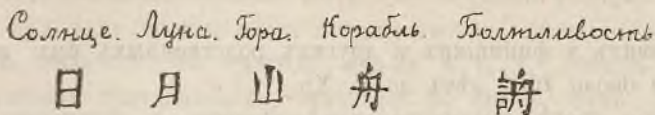 Солнце. Луна. Гора. Корабль. Болтливость
日 月 山 舟